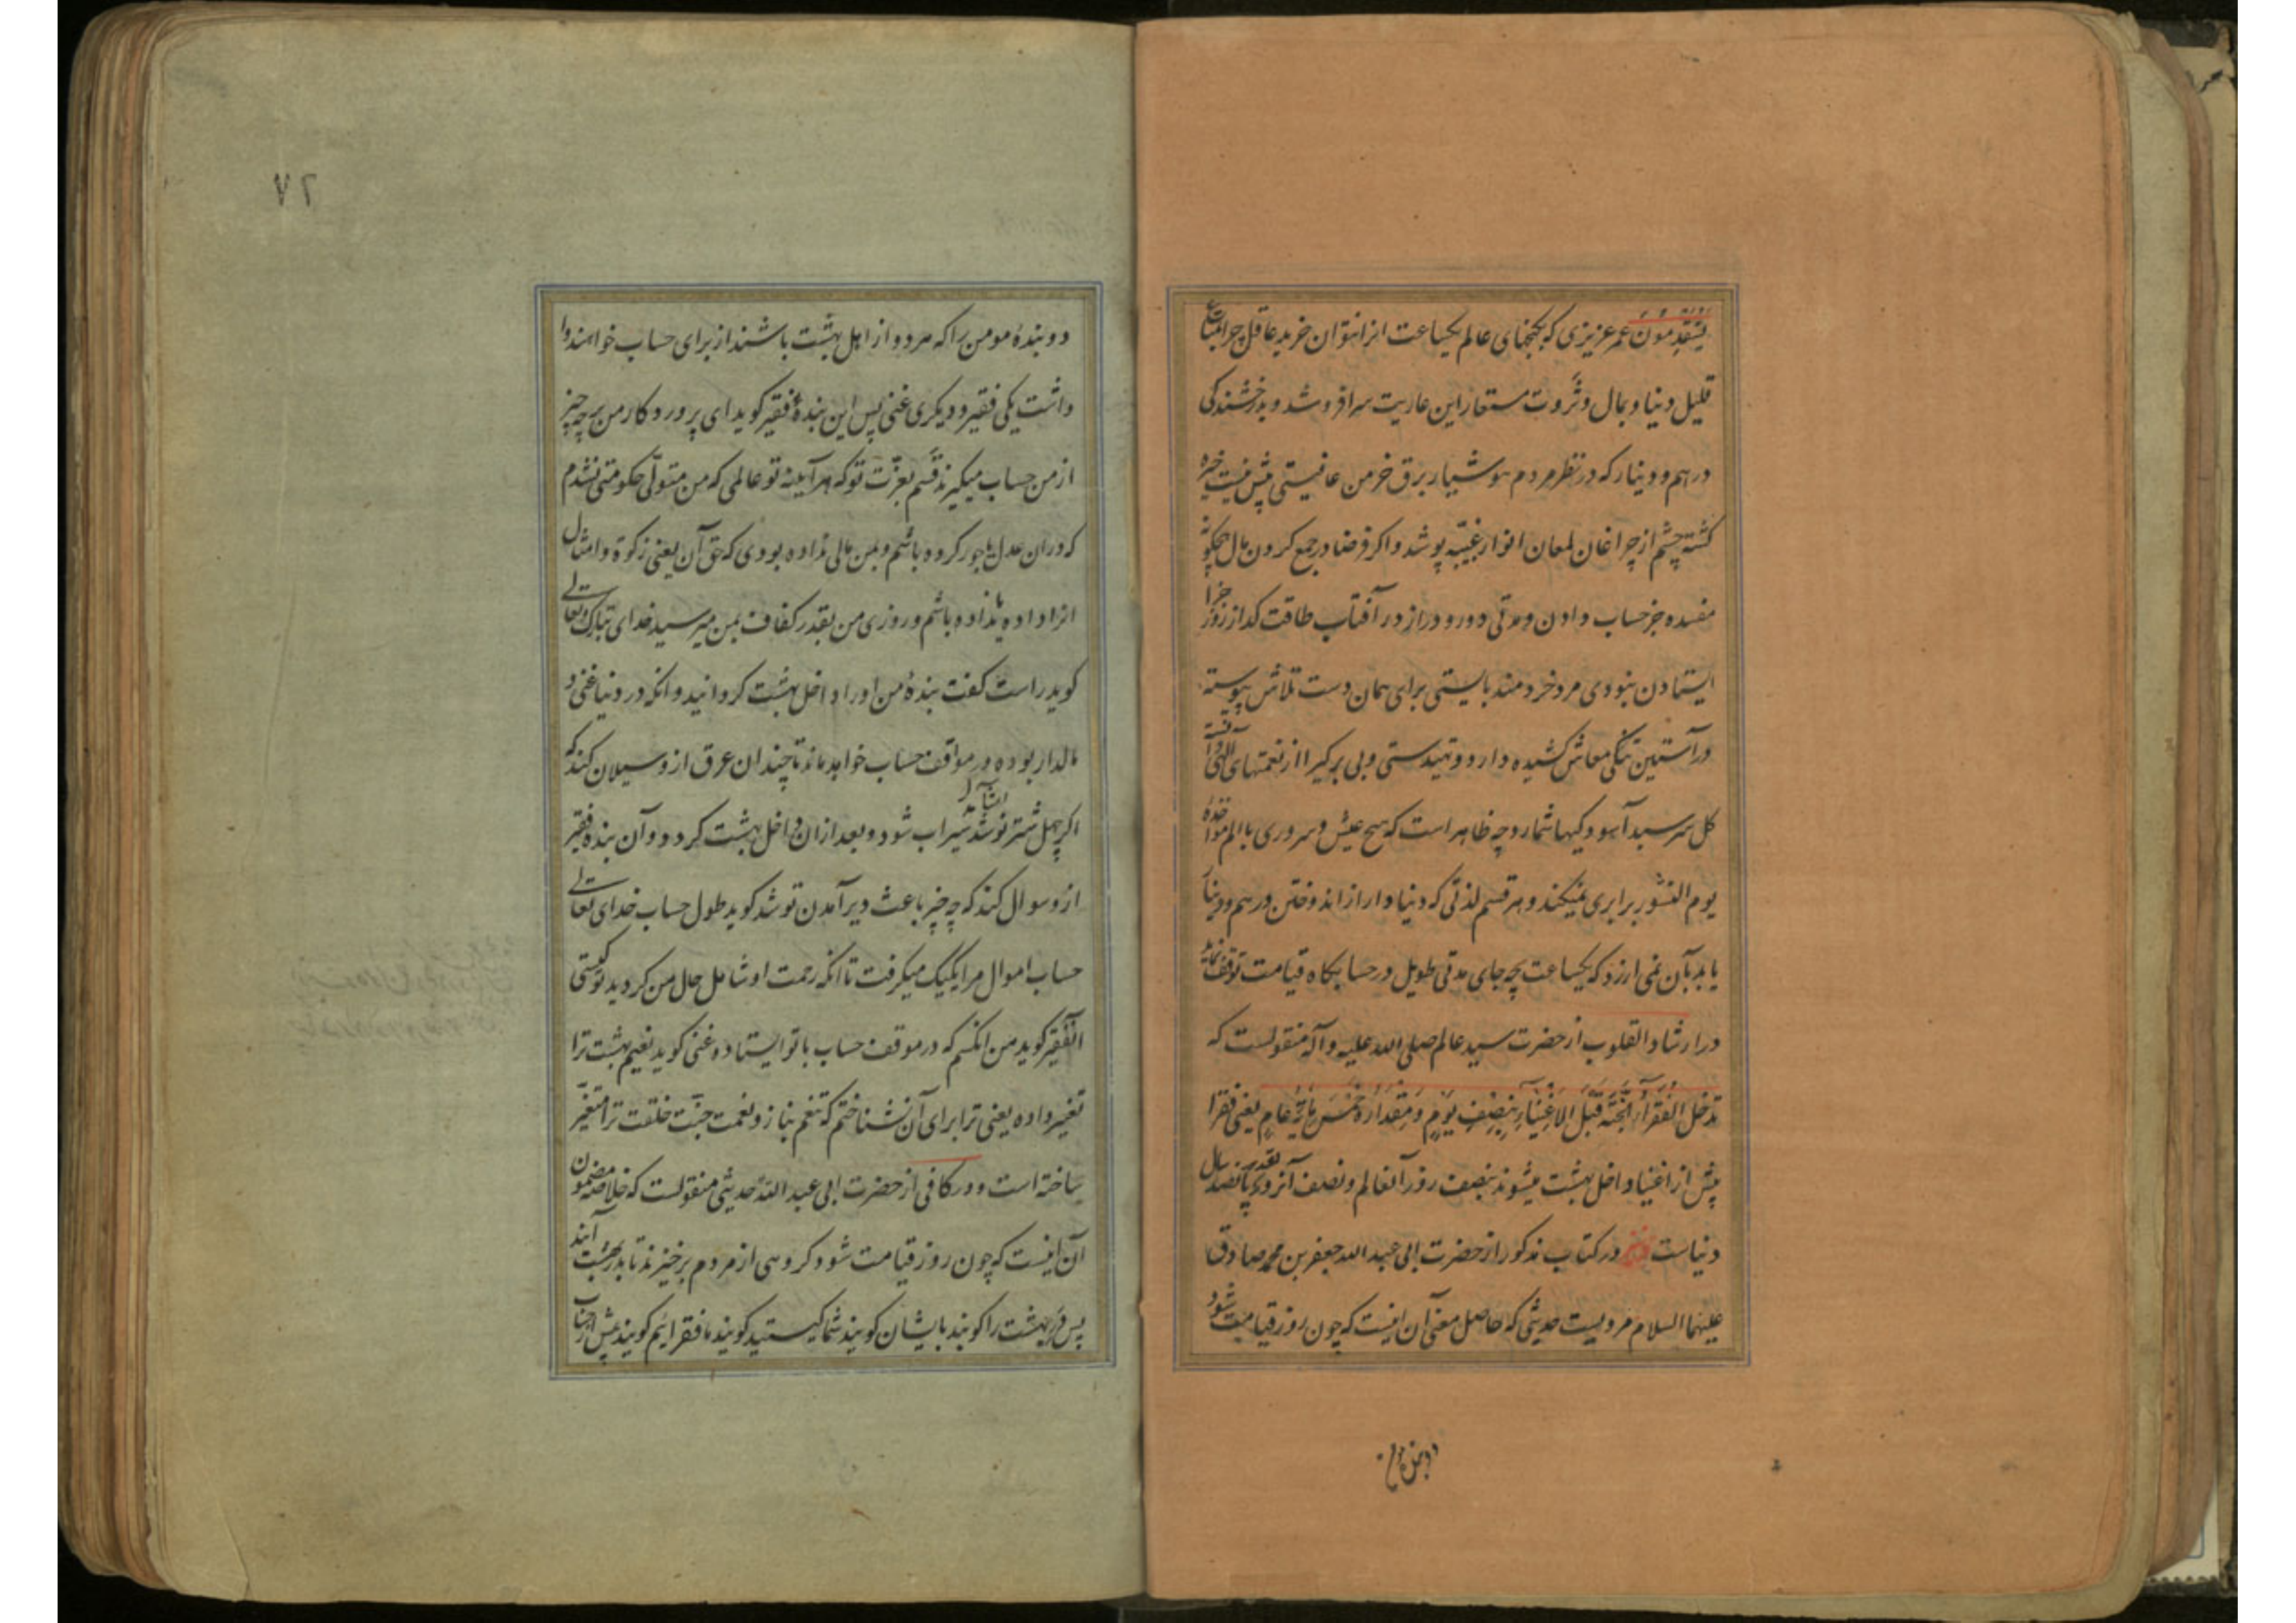 یَسْتَقْدِمُونَ عمر عزیزی که بکنجهای عالم یکساعت انرا نتوان خرید عاقل چرا بمتاع
قلیل دنیا و بمال و ثروت مستعار این عاریت سرا فروشد و بدرخشندکی
درهم و دینار که در نظر مردم هوشیار برق خرمن عافیتی بیش نیست خیره
کشته چشم از چراغان لمعان انوار غیبیّه پوشد و اکر فرضا در جمع کردن مال هیچکونه
مفسده جز حساب دادن و مدتی دور و دراز در آفتاب طاقت کداز روز جزا
ایستادن نبودی مرد خردمند بایستی برای همان دست تلاش پیوسته
در آستین تنکی معاش کشیده دارد و تهیدستی و بی برکیرا از نعمتهای الهی دانسته
کل سر سبد آسودکیها شمارد چه ظاهر است که هیچ عیش و سروری با الم مواخذهٔ
یوم النشور برابری نمیکند و هر قسم لذتی که دنیادار از اندوختن درهم و دینار
یابد بآن نمی ارزد که یکساعت چه جای مدتی طویل در حسابکاه قیامت توقف نماید
در ارشاد القلوب از حضرت سید عالم صلی الله علیه و آله منقولست که
تدخل الفقرآءُ الجَنَّةَ قَبْلَ الاَغْنِیَآءِ بِنِصْفِ یَوْمٍ وَ مِقْدَارُهُ خَمْسُ مِائَةِ عَامٍ یعنی فقرا
پیش از اغنیا داخل بهشت میشوند بنصف روز آنعالم و نصف آنروز بقدر پانصد سال
دنیاست و نیز در کتاب مذکور از حضرت ابی عبد الله جعفر بن محمد صادق
علیهما السلام مرویست حدیثی که حاصل معنی آن اینست که چون روز قیامت شود
دو بنده مومن
۷۲
دو بندهٔ مومن را که هر دو از اهل بهشت باشند از برای حساب خواهند وا
داشت یکی فقیر و دیکری غنی پس این بندهٔ فقیر کوید ای پروردکار من بر چه چیز
از من حساب میکیرند قسم بعزّت تو که هر آینه تو عالمی که من متولّی حکومتی نشدم
که دران عدل یا جور کرده باشم و بمن مالی نداده بودی که حق آن یعنی زکوة و امثال
انرا داده یا نداده باشم و روزی من بقدر کفاف بمن میرسید خدای تبارک و تعالی
کوید راست کفت بندهٔ من او را داخل بهشت کردانید و انکه در دنیا غنی و
مالدار بوده در مواقف حساب خواهد ماند تا چندان عرق ازو سیلان کند که
اکر چهل شتر نوشد سیراب شود و بعد ازان داخل بهشت کردد و آن بنده فقیر
ازو سوال کند که چه چیز باعث دیر آمدن تو شد کوید طول حساب خدای تعالی
حساب اموال مرا یکیک میکرفت تا انکه رحمت او شامل حال من کردید تو کیستی
انفقیر کوید من انکسم که در موقف حساب با تو ایستاده غنی کوید نعیم بهشت ترا
تغییر داده یعنی ترا برای آن نشناختم که تنعم بناز و نعمت جنّت خلقت ترا متغیّر
ساخته است و در کافی از حضرت ابی عبد الله حدیثی منقولست که خلاصه مضمون
آن اینست که چون روز قیامت شود کروهی از مردم برخیزند تا بدر بهشت آیند
پس در بهشت را کوبند بایشان کویند شما کیستید کویند ما فقرائیم کویند پیش از حساب